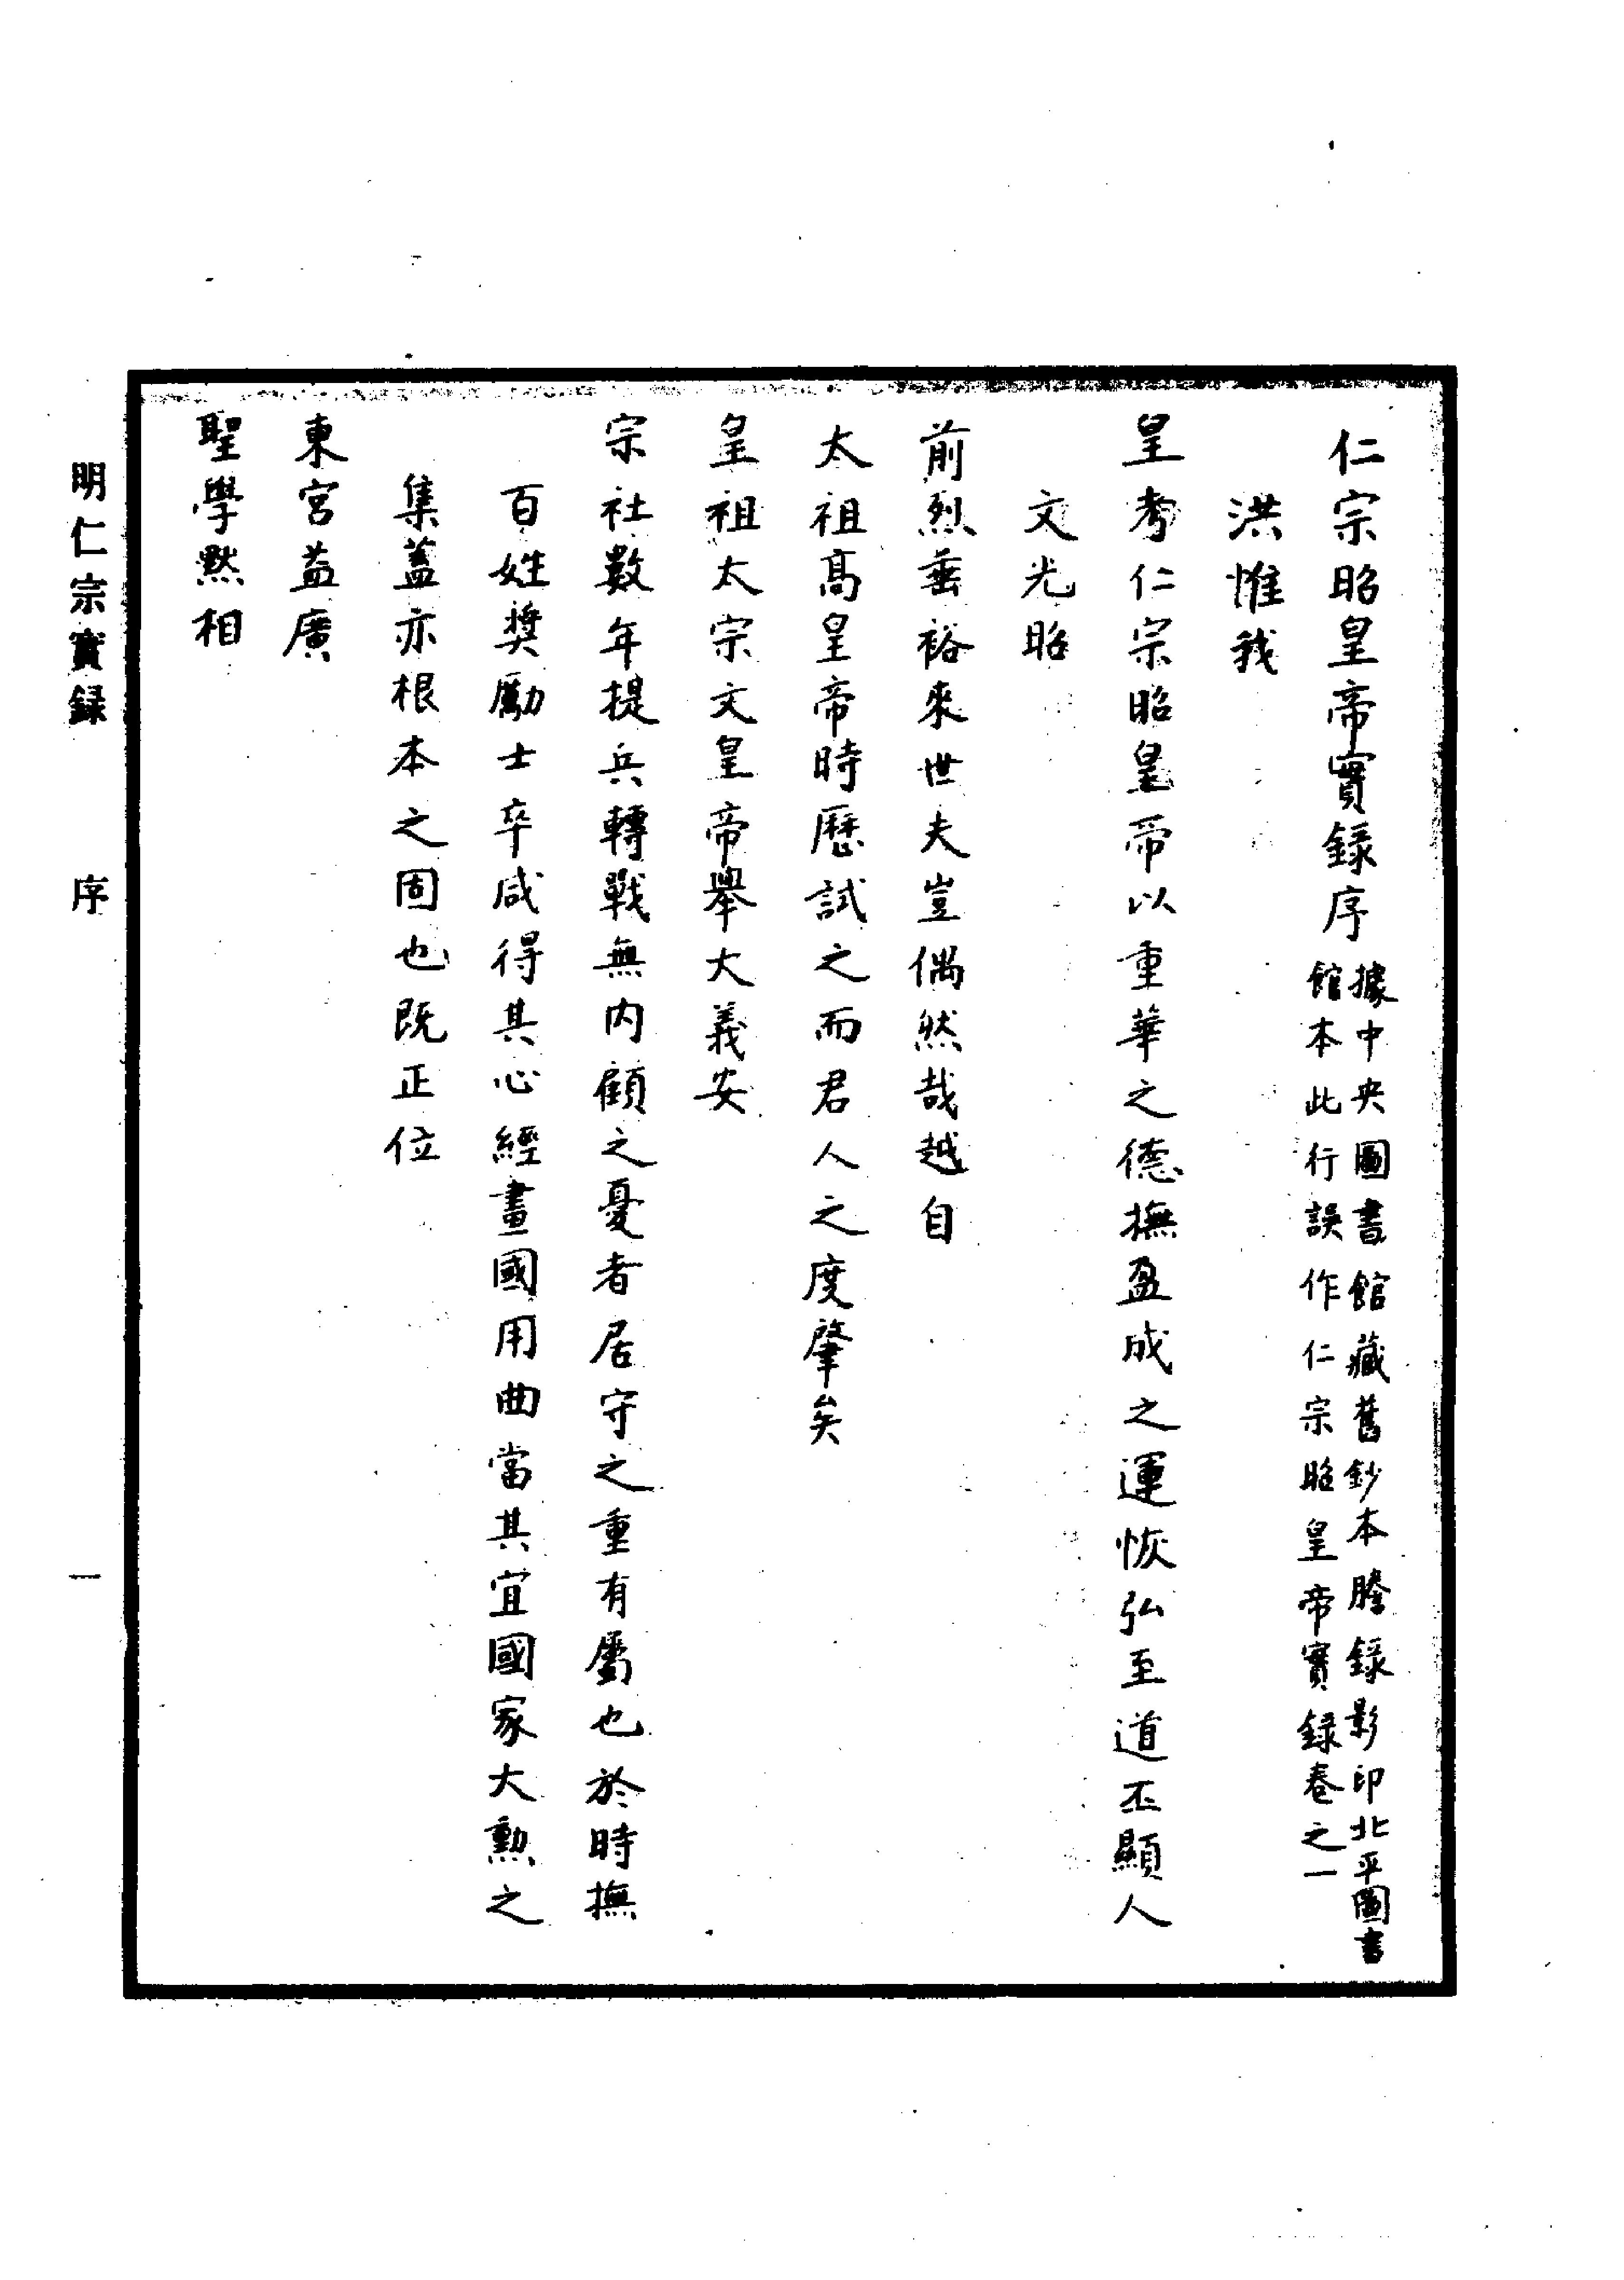 仁宗昭皇帝實録序
據中央圖書館藏舊鈔本謄録影印北平圖書
館本此行誤作仁宗昭皇帝實録卷之一
洪惟我
皇考仁宗昭皇帝以重華之德撫盈成之運恢弘至道丕顯人
文光昭
前烈垂裕來世夫豈偶然哉越自
太祖高皇帝時歷試之而君人之度肇矣
皇祖太宗文皇帝舉大義安
宗社數年提兵轉戰無内顧之憂者居守之重有屬也於時撫
百姓獎勵士卒咸得其心經畫國用曲當其宜國家大勲之
集蓋亦根本之固也既正位
東宮益廣
聖學黙相
明仁宗實録 序 一